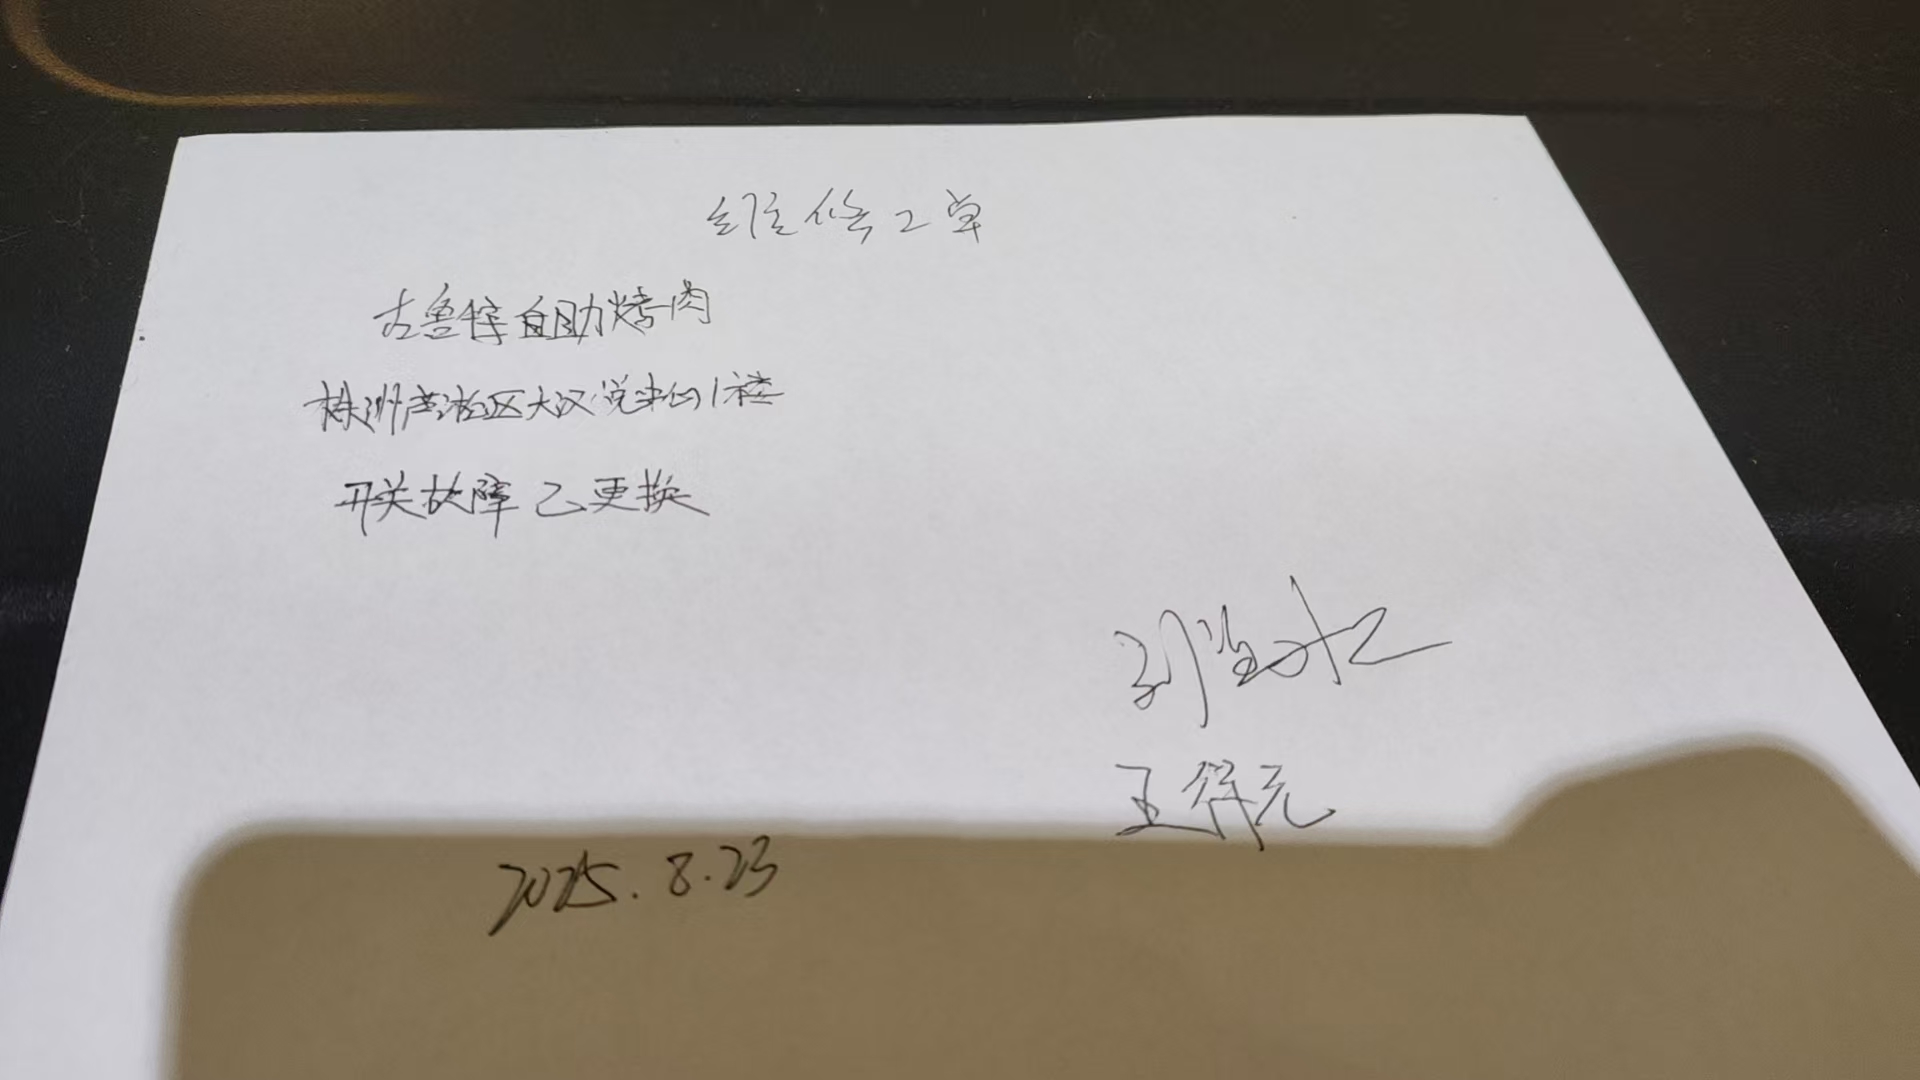 维修工单
古鲁特自助烤肉
株洲芦淞区大汉悦中心1楼
开关故障 已更换
王得元
2025.8.23